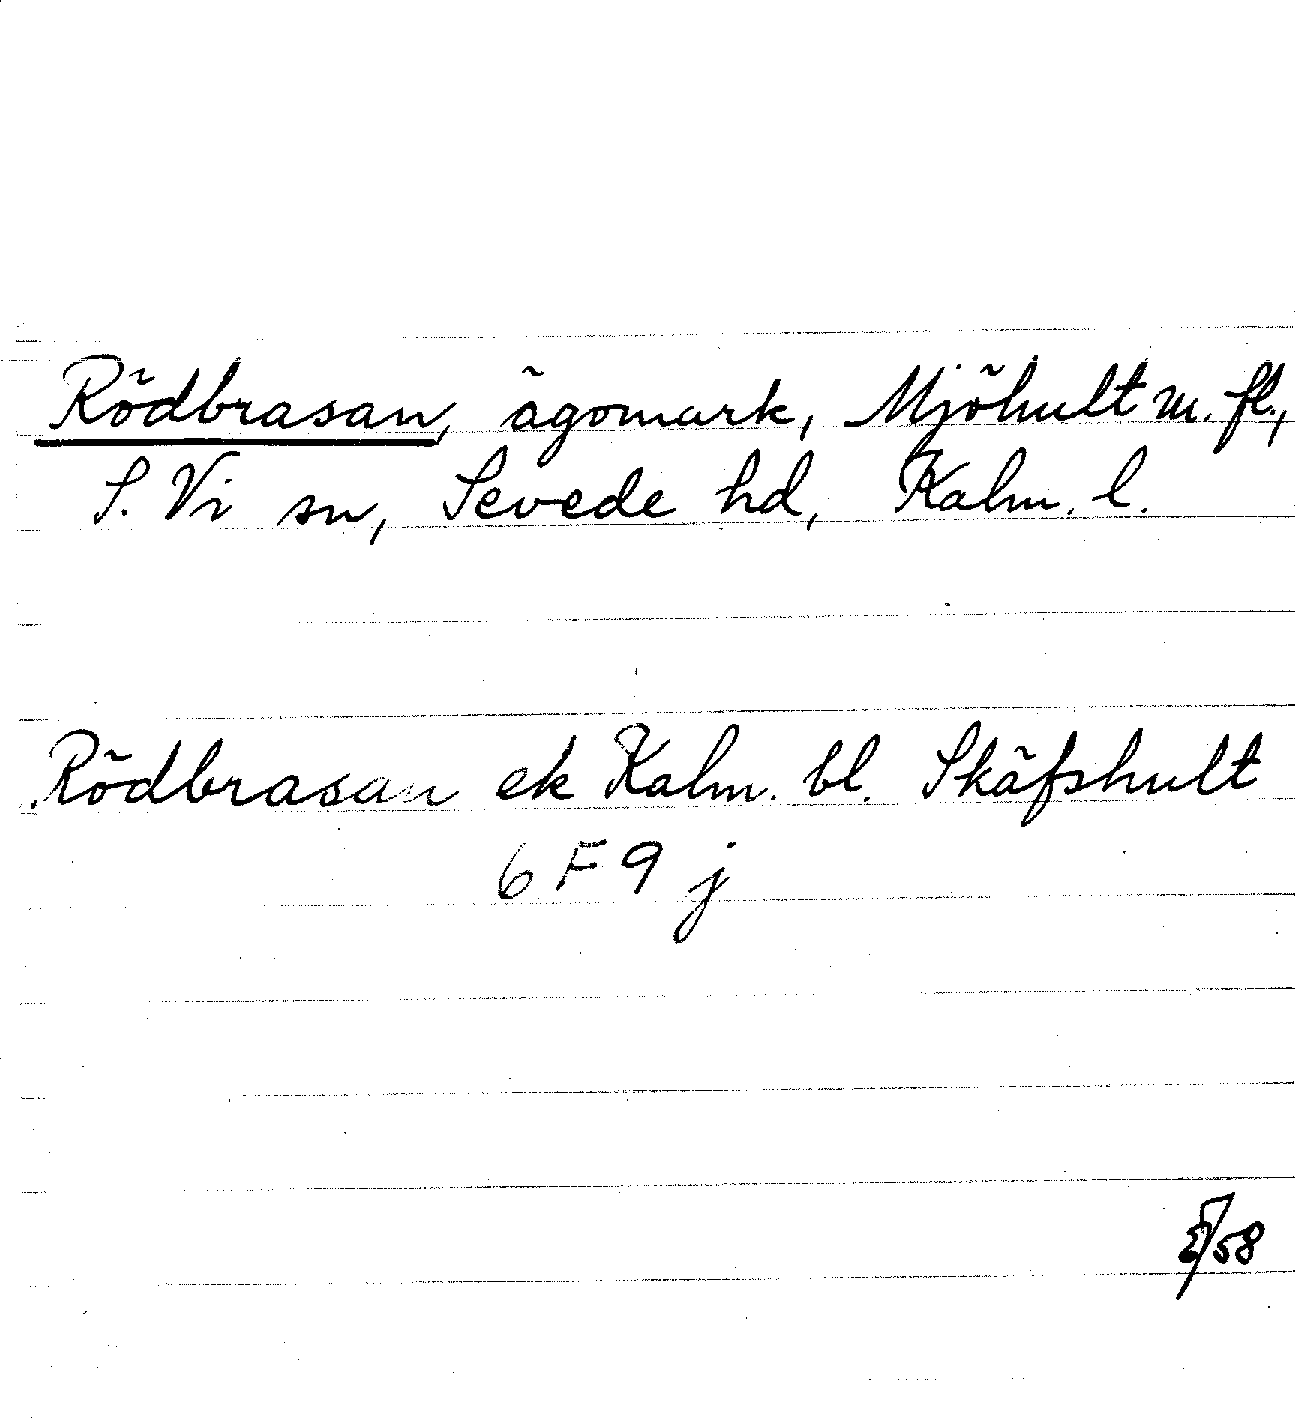 Rödbrasan, ägomark, Mjöhult m. fl.,
S. Vi sn, Sevede hd, Kalm. l.
Rödbrasan ek Kalm. bl. Skäfshult
6 F 9 j
/58